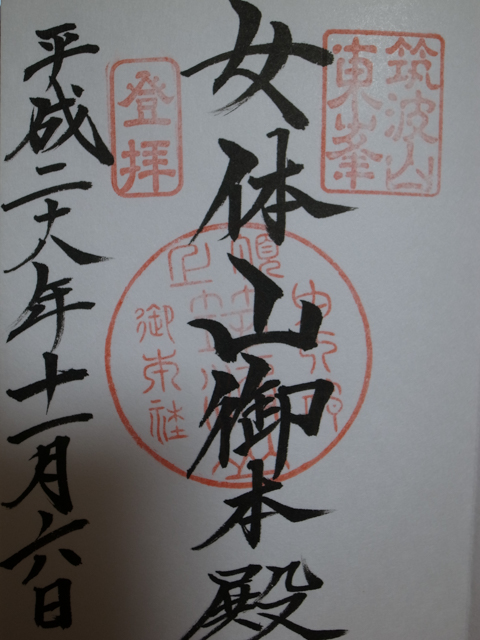 筑波山
東峯
女体山御本殿
登拝
平成二十八年十一月六日
御本社